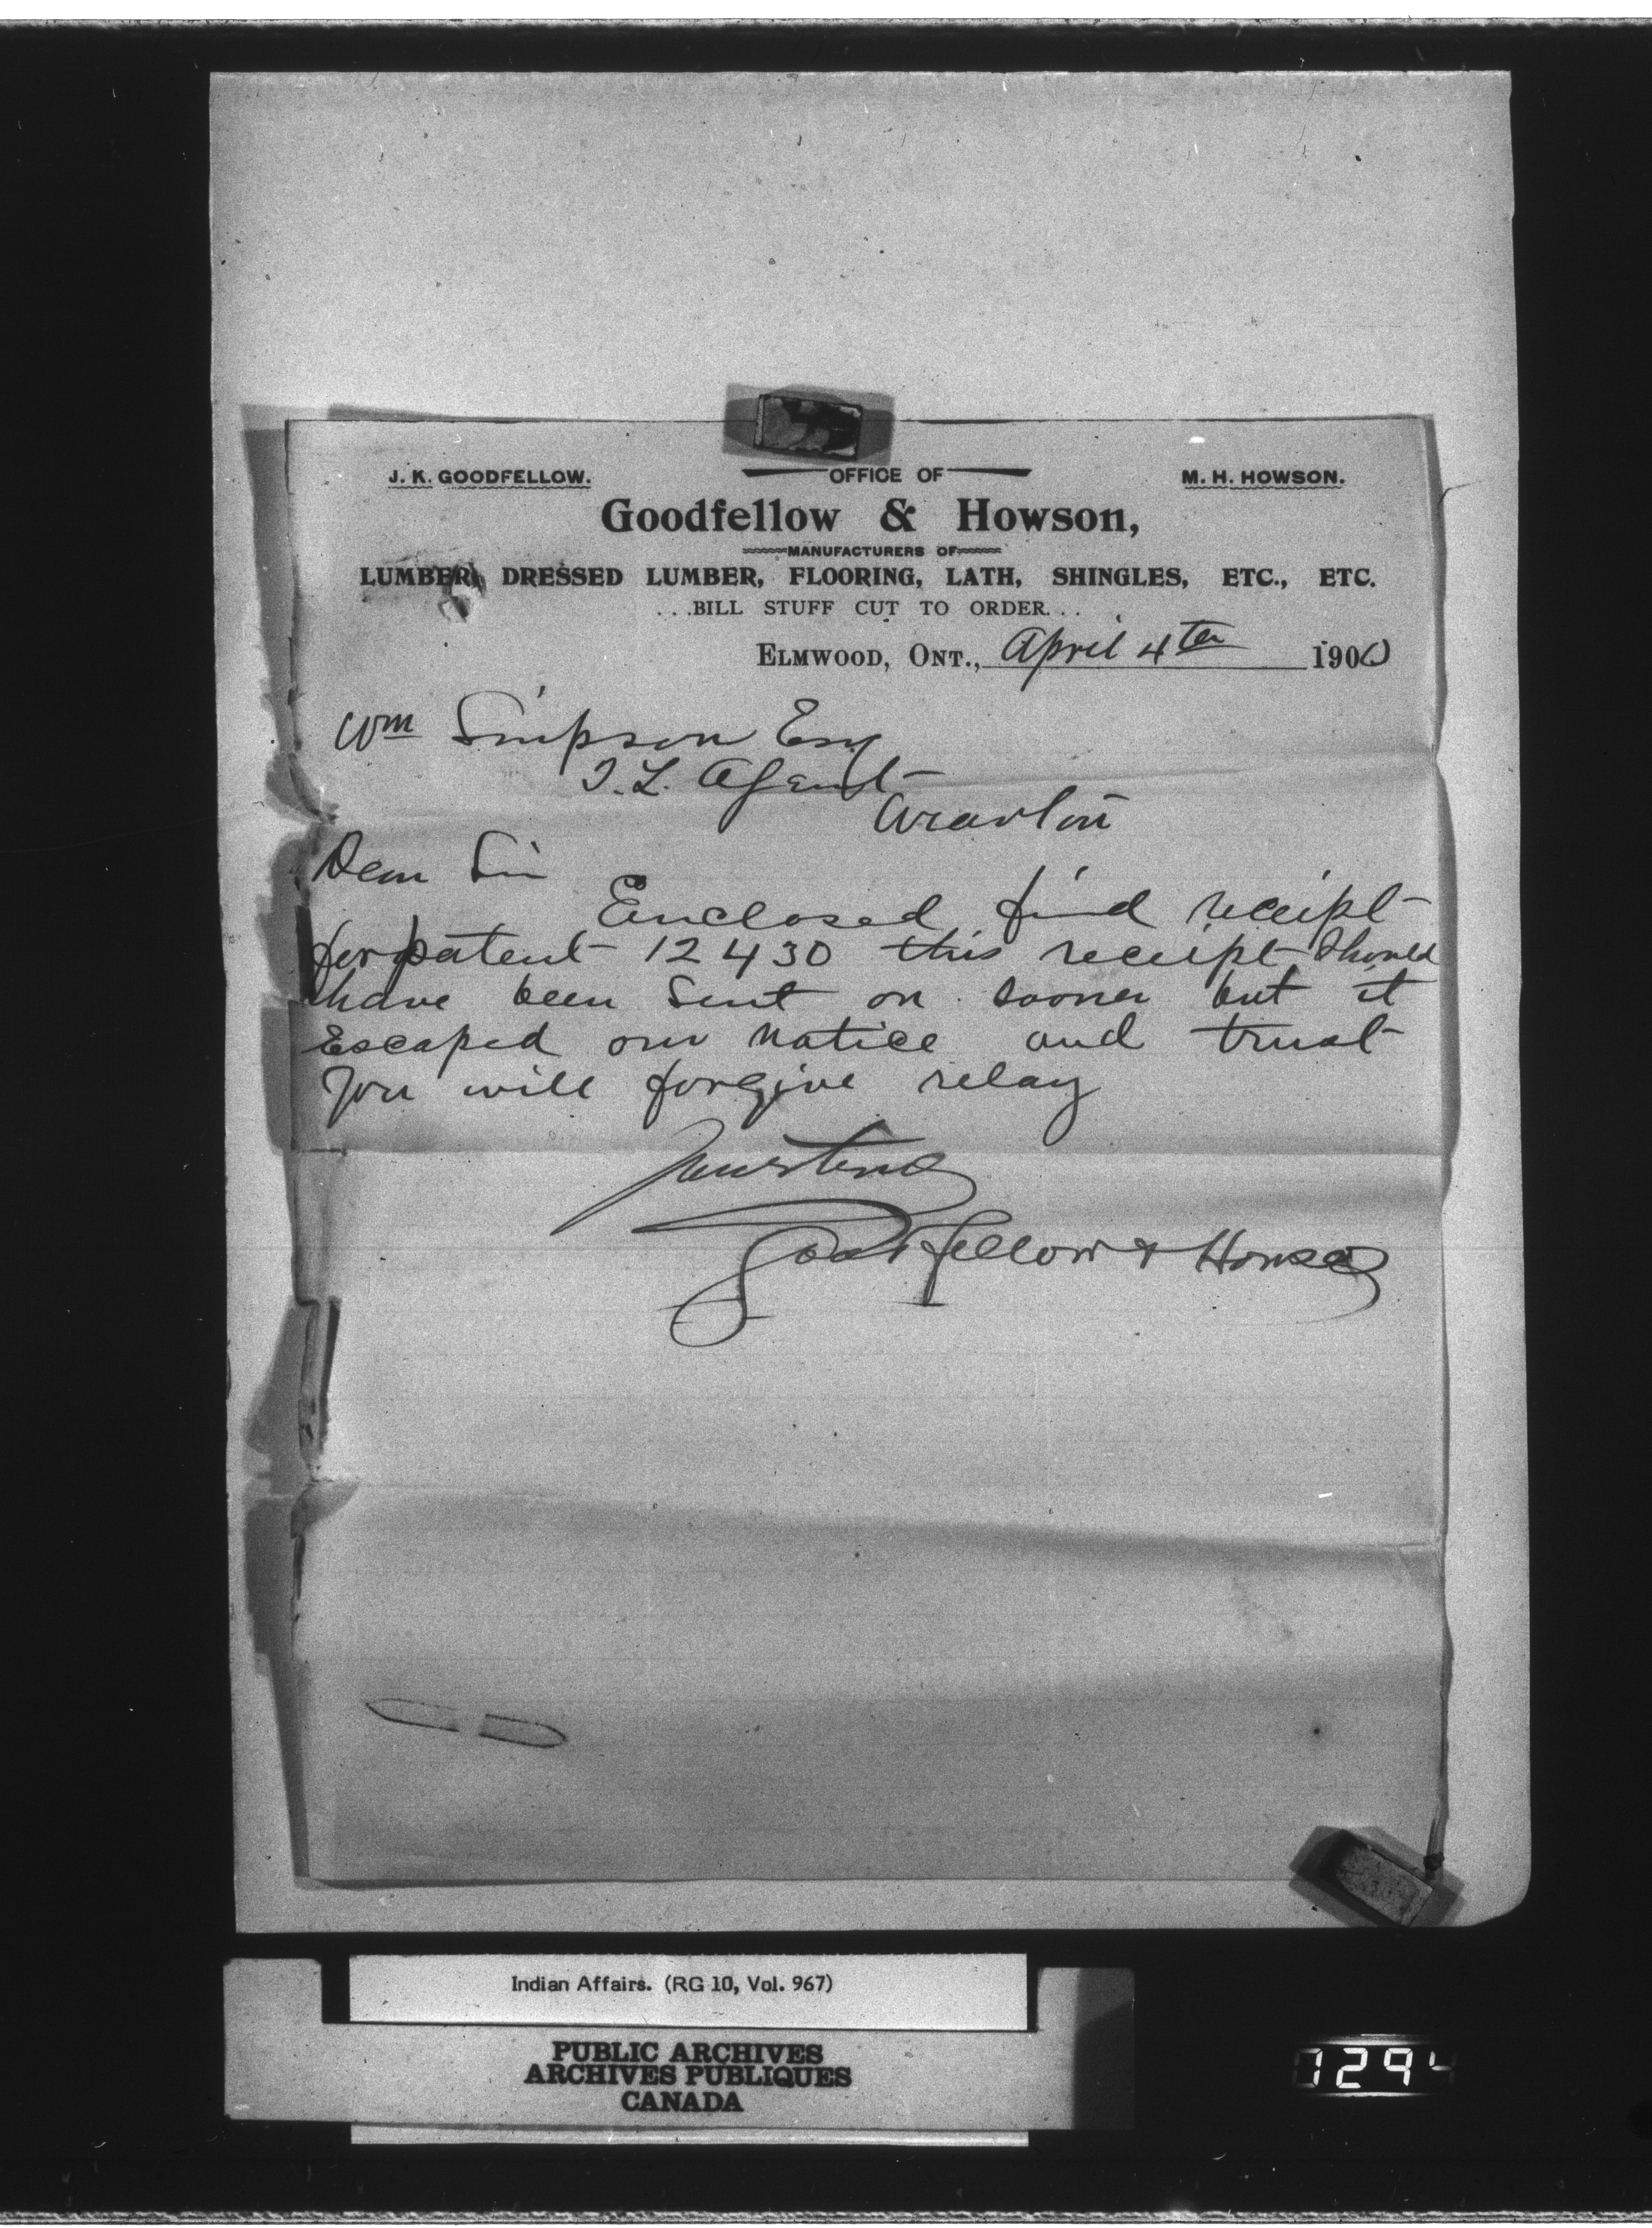 J. K. GOODFELLOW. OFFICE OF M. H. HOWSON.
Goodfellow & Howson,
MANUFACTURERS OF
LUMBER, DRESSED LUMBER, FLOORING, LATH, SHINGLES, ETC., ETC.
...BILL STUFF CUT TO ORDER...
ELMWOOD, ONT., April 4th 1900
Wm Simpson Esq
I. L. Agent
Wiarton
Dear Sir
Enclosed find receipt
for patent 12430 this receipt should
have been sent on sooner but it
Escaped our notice and trust
you will forgive relay
Yours truly
Goodfellow & Howson
Indian Affairs. (RG 10, Vol. 967)
PUBLIC ARCHIVES
ARCHIVES PUBLIQUES
CANADA